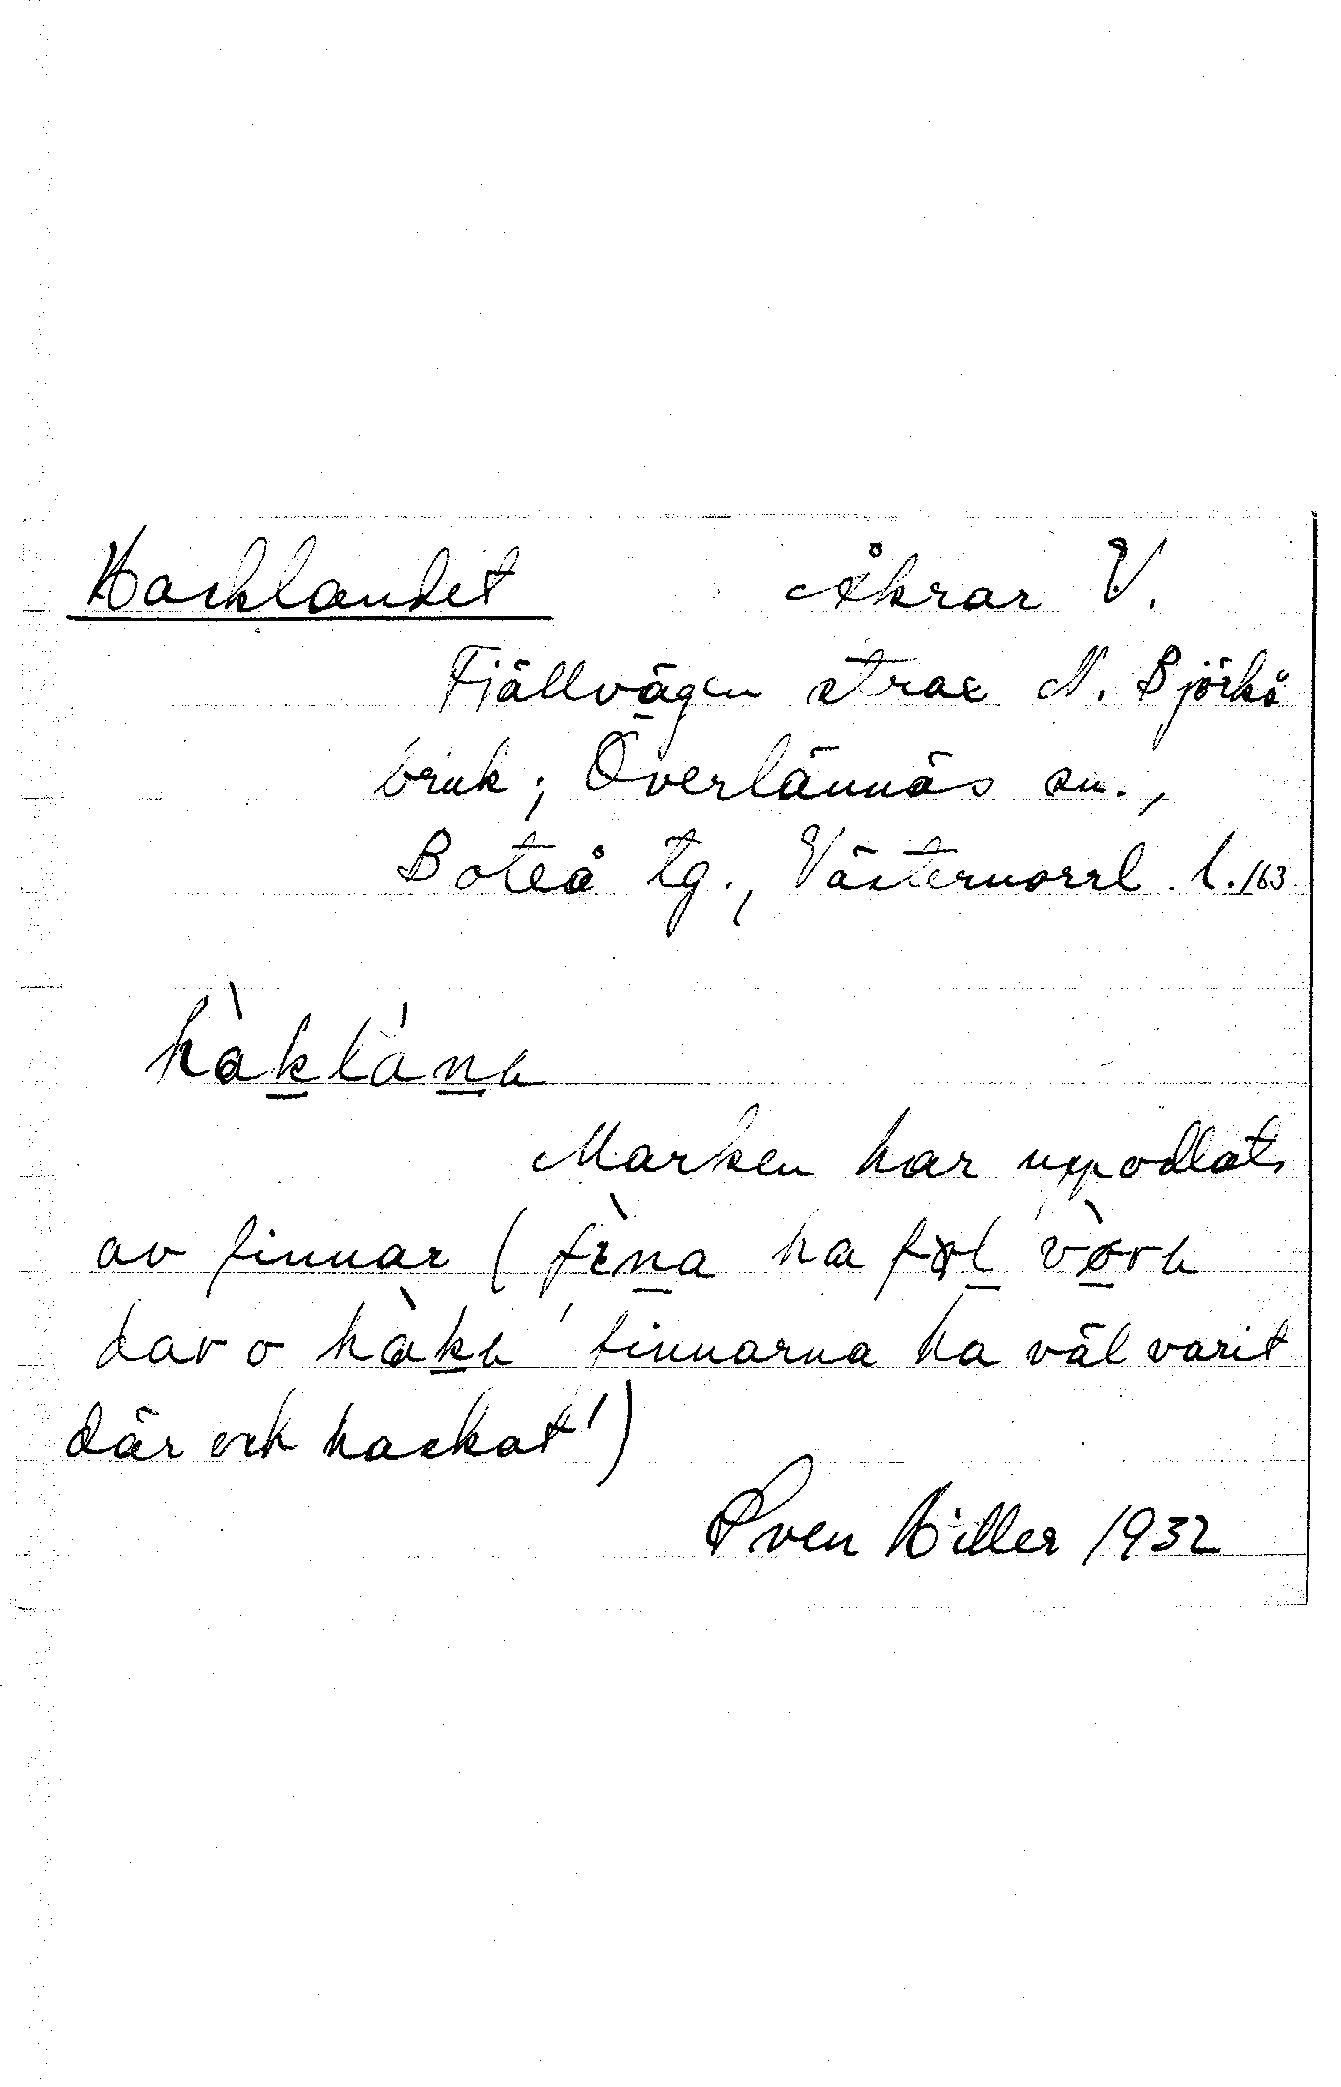 Hacklandet Åkrar V.
Fjällvägen strax N. Björkå
bruk; Överlännäs sn.,
Boteå tg., Västernorrl. l. 163
hàklána
Marken har uppodlats
av finnar (fìna ha vòra
dar o hàka 'finnarna ha väl varit
där och hackat')
Sven Hiller 1932